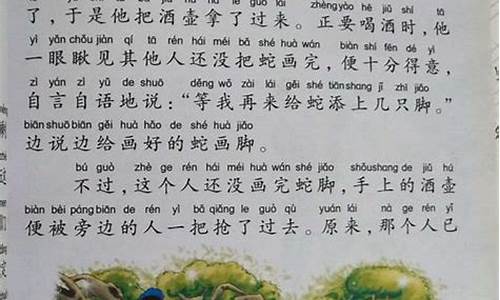 le guò lái zhèngyào hē jiǔ shí tā
了，于是他把酒壶拿了过来。正要喝酒时，他
yì yǎn chǒu jiàn qí tā rén hái méi bǎ shé huà wán biàn shí fēn dé yì
一眼瞅见其他人还没把蛇画完，便十分得意，
zì yán zì yǔ de shuō děng wǒ zài lái gěi shé tiānshang jǐ zhī jiǎo
自言自语地说：“等我再来给蛇添上几只脚。”
biān shuō biān gěi huà hǎo de shé huà jiǎo
边说边给画好的蛇画脚。
bú guò zhè ge rén hái méi huà wán shé jiǎo shǒushang de jiǔ hú
不过，这个人还没画完蛇脚，手上的酒壶
biàn bèi páng biān de rén yì bǎ qiǎng le guò qù yuán lái nà ge rén yǐ
便被旁边的人一把抢了过去。原来，那个人已